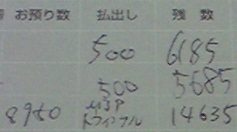 お預り数 払出し 残 数
500 6185
500 5685
8950 14635